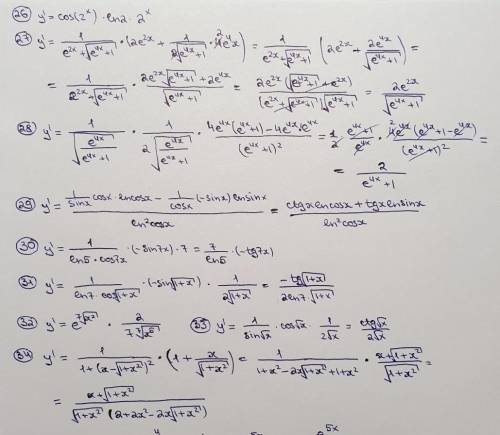 26 y' = cos(2^x) · ln2 · 2^x
27 y' = 1/(e^2x + √(e^4x+1)) · (2e^2x + 1/(2√(e^4x+1)) · 4e^4x) = 1/(e^2x + √(e^4x+1)) (2e^2x + 2e^4x/√(e^4x+1)) =
= 1/(e^2x + √(e^4x+1)) · (2e^2x √(e^4x+1) + 2e^4x)/√(e^4x+1) = 2e^2x (√(e^4x+1) + e^2x)/((e^2x + √(e^4x+1)) √(e^4x+1)) = 2e^2x/√(e^4x+1)
28 y' = 1/√(e^4x/(e^4x+1)) · 1/(2√(e^4x/(e^4x+1))) · (4e^4x (e^4x+1) - 4e^4x · e^4x)/(e^4x+1)² = 1/2 · (e^4x+1)/e^4x · 4e^4x (e^4x+1-e^4x)/(e^4x+1)² =
= 2/(e^4x+1)
29 y' = (1/sinx cosx · ln cosx - 1/cosx (-sinx) ln sinx)/ln²cosx = (ctgx ln cosx + tgx ln sinx)/ln²cosx
30 y' = 1/(ln5 · cos7x) · (-sin7x) · 7 = 7/ln5 · (-tg7x)
31 y' = 1/(ln7 · cos√(1+x)) · (-sin√(1+x)) · 1/(2√(1+x)) = -tg√(1+x)/(2ln7 · √(1+x))
32 y' = e^(⁷√x²) · 2/(7 ⁷√x⁵) 33 y' = 1/sin√x · cos√x · 1/(2√x) = ctg√x/(2√x)
34 y' = 1/(1+(x-√(1+x²))²) · (1 + x/√(1+x²)) = 1/(1+x²-2x√(1+x²)+1+x²) · (x+√(1+x²))/√(1+x²) =
= (x+√(1+x²))/(√(1+x²) (2+2x²-2x√(1+x²)))